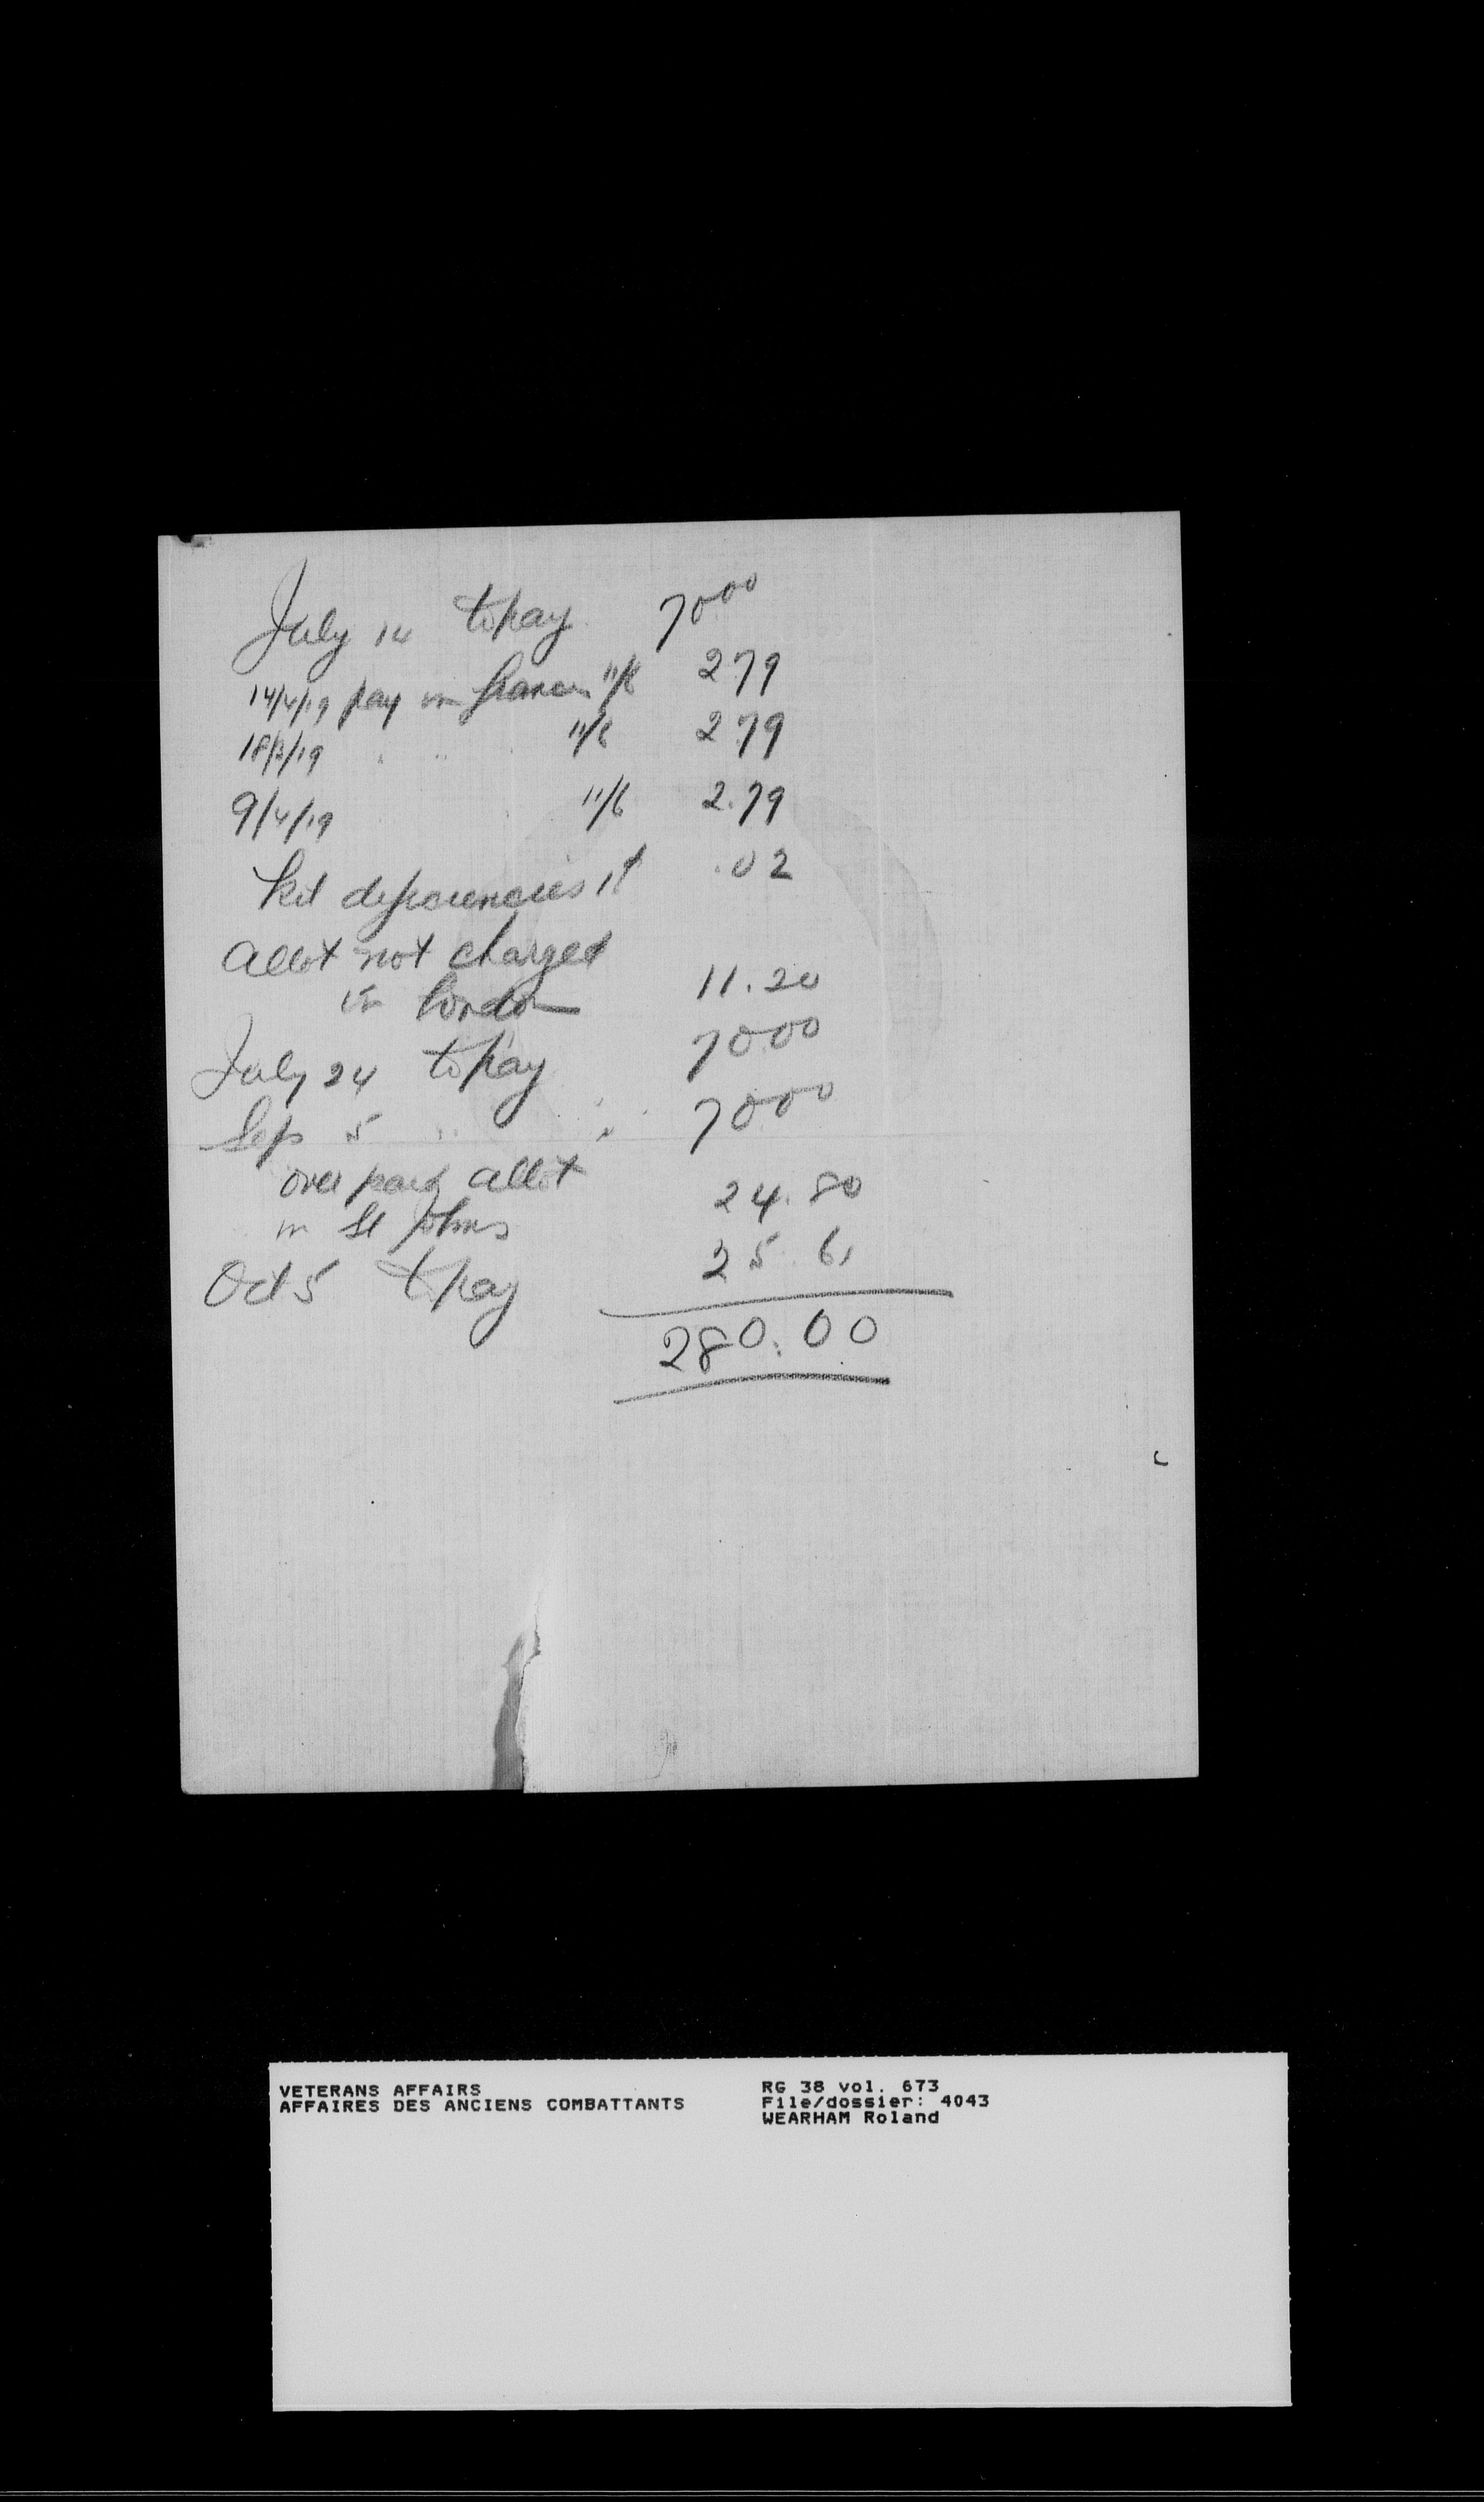 July 14 to pay 70 00
14/4/19 pay in France 11/6 2 79
18/3/19 " " 11/6 2.79
9/4/19 11/6 2.79
Kit deficiencies 1d .02
Allot not charged
in London 11.20
July 24 to pay 70 00
Sep 5 " " 70 00
over paid allot
in St Johns 24.80
Oct 5 to pay 25.61
280.00
VETERANS AFFAIRS RG 38 vol. 673
AFFAIRES DES ANCIENS COMBATTANTS File/dossier: 4043
WEARHAM Roland